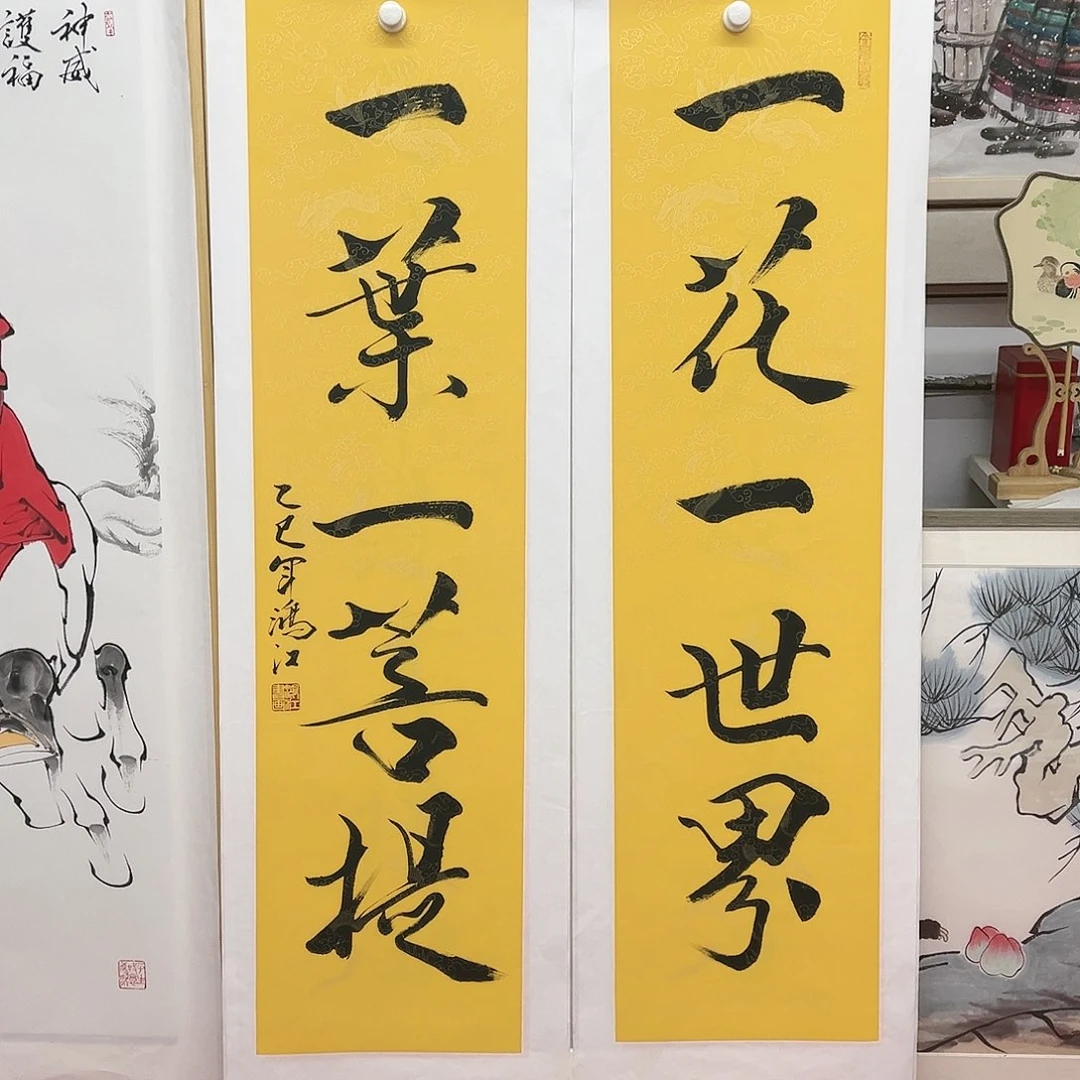 一花一世界
一葉一菩提
乙巳年鴻江
神威
護福